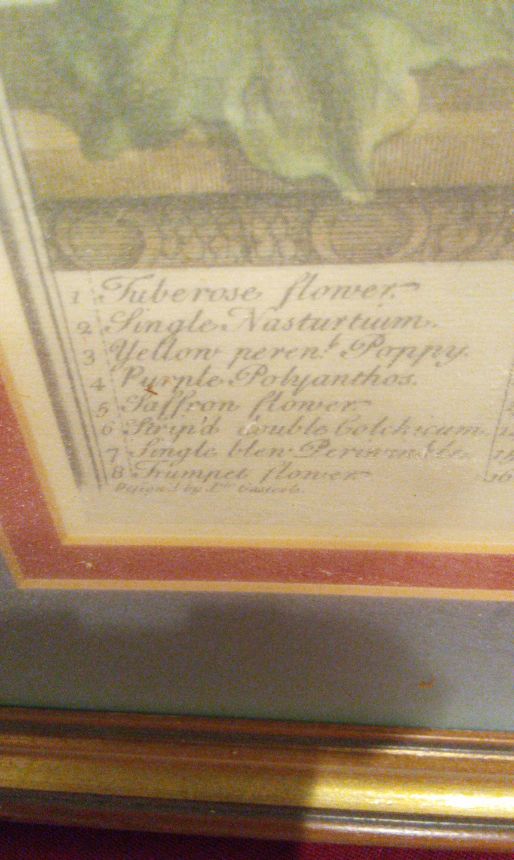 1 Tuberose flower.
2 Single Nasturtium.
3 Yellow peren.^t Poppy.
4 Purple Polyanthos.
5 Saffron flower.
6 Strip'd double Colchicum.
7 Single blew Periwinkle.
8 Trumpet flower
Design'd by P.^tr Casteels.
16